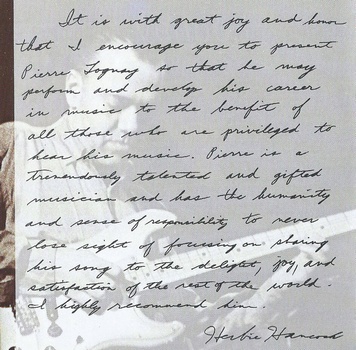 It is with great joy and honor
that I encourage you to present
Pierre Tognay so that he may
perform and develop his career
in music to the benefit of
all those who are privileged to
hear his music. Pierre is a
tremendously talented and gifted
musician and has the humanity
and sense of responsibility to never
lose sight of focusing on sharing
his song to the delight, joy, and
satisfaction of the rest of the world.
I highly recommend him.
Herbie Hancock